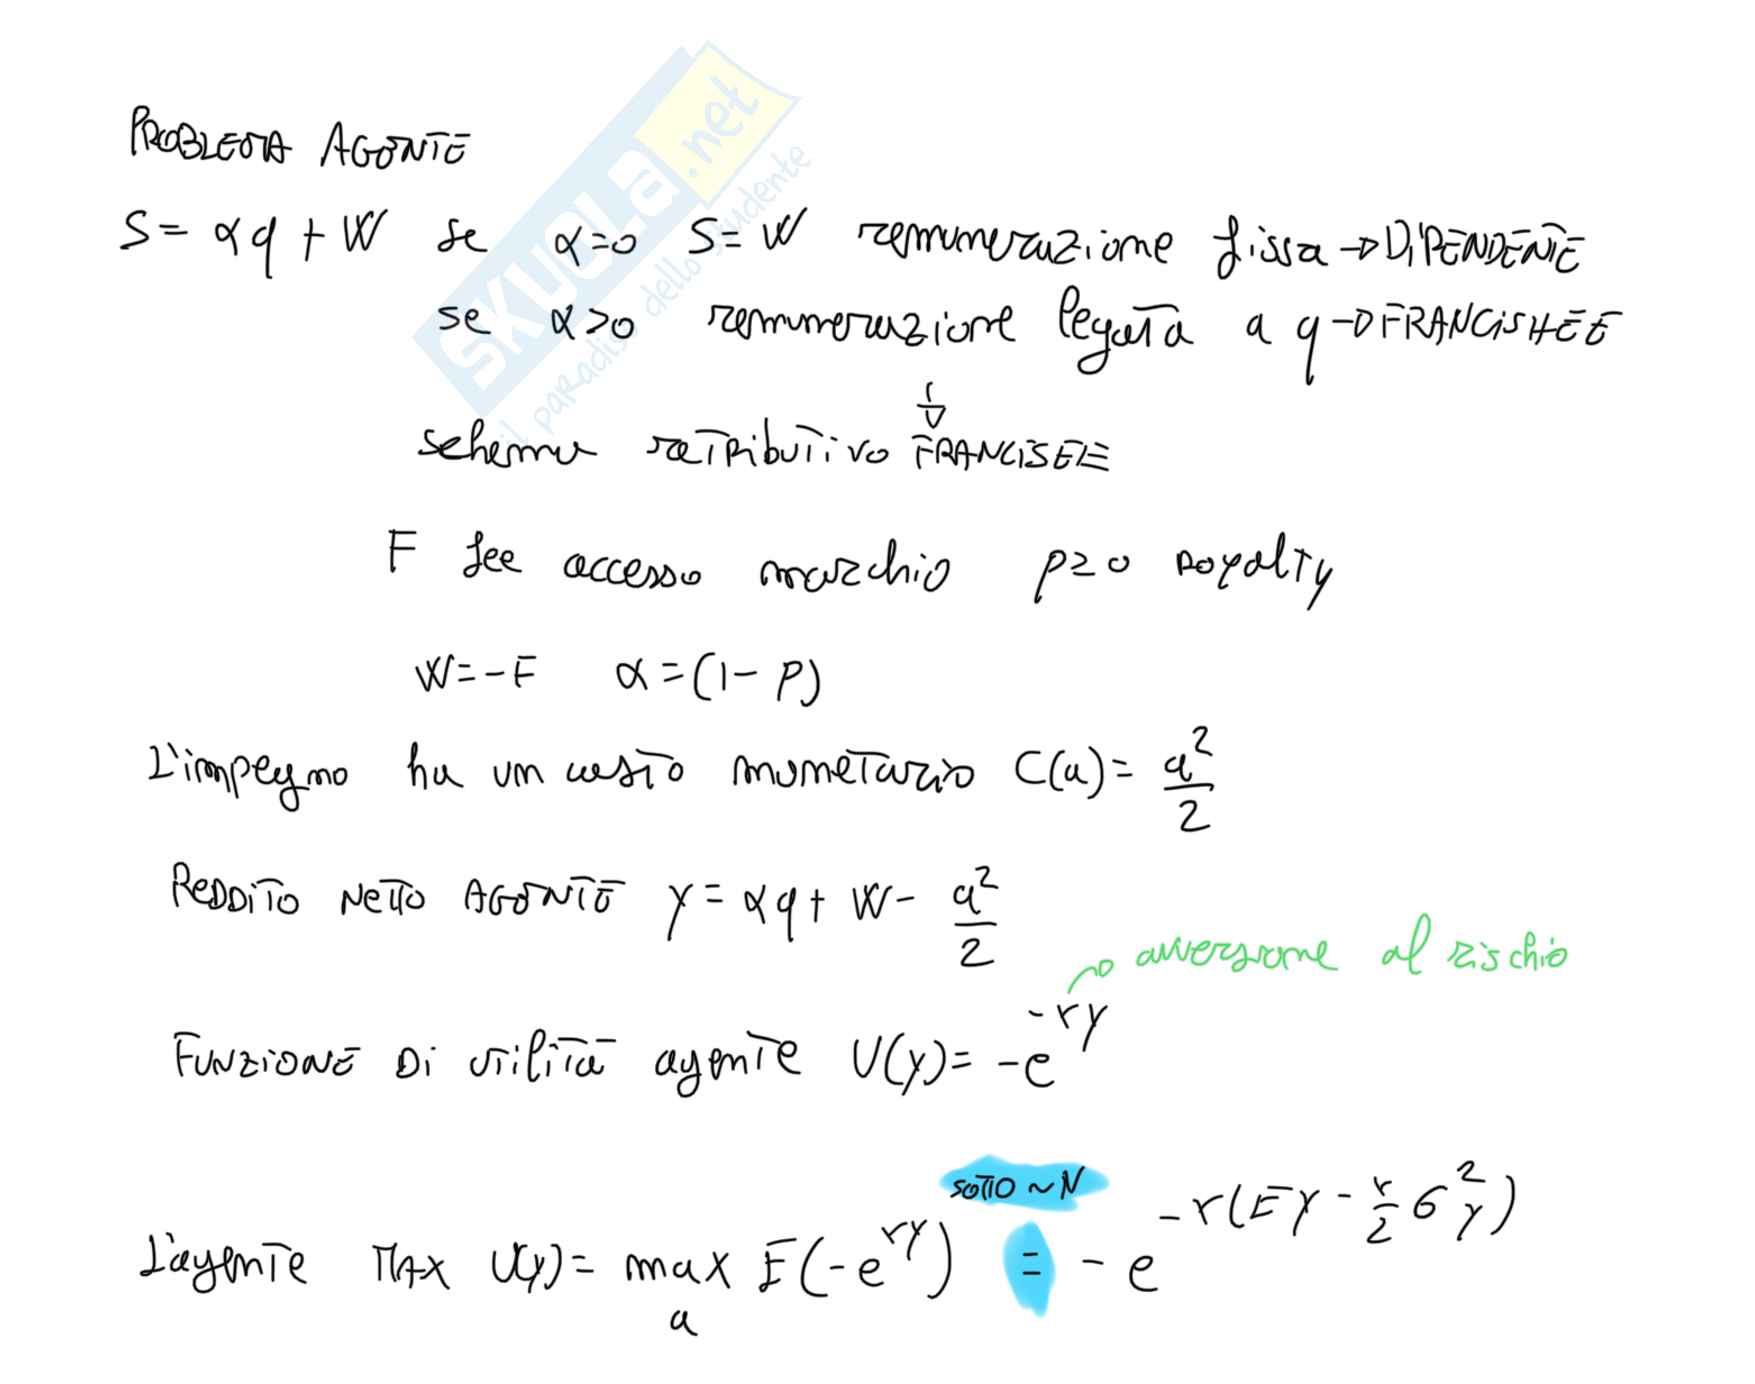 PROBLEMA AGENTE
S = αq + W se α=0 S=W remunerazione fissa → DIPENDENTE
se α>0 remunerazione legata a q → FRANCISHEE
schema retributivo FRANCISEE
F fee accesso marchio p≥0 royalty
W = -F α = (1-p)
L'impegno ha un costo monetario C(a) = a²/2
REDDITO NETTO AGENTE y = αq + W - a²/2
avversione al rischio
FUNZIONE DI utilità agente U(y) = -e^(-ry)
SOTTO ~ N
L'agente MAX U(y) = max_a E(-e^(ry)) = -e^(-r(Ey - r/2 σ²_y))
SKUOLA.net
il paradiso dello studente